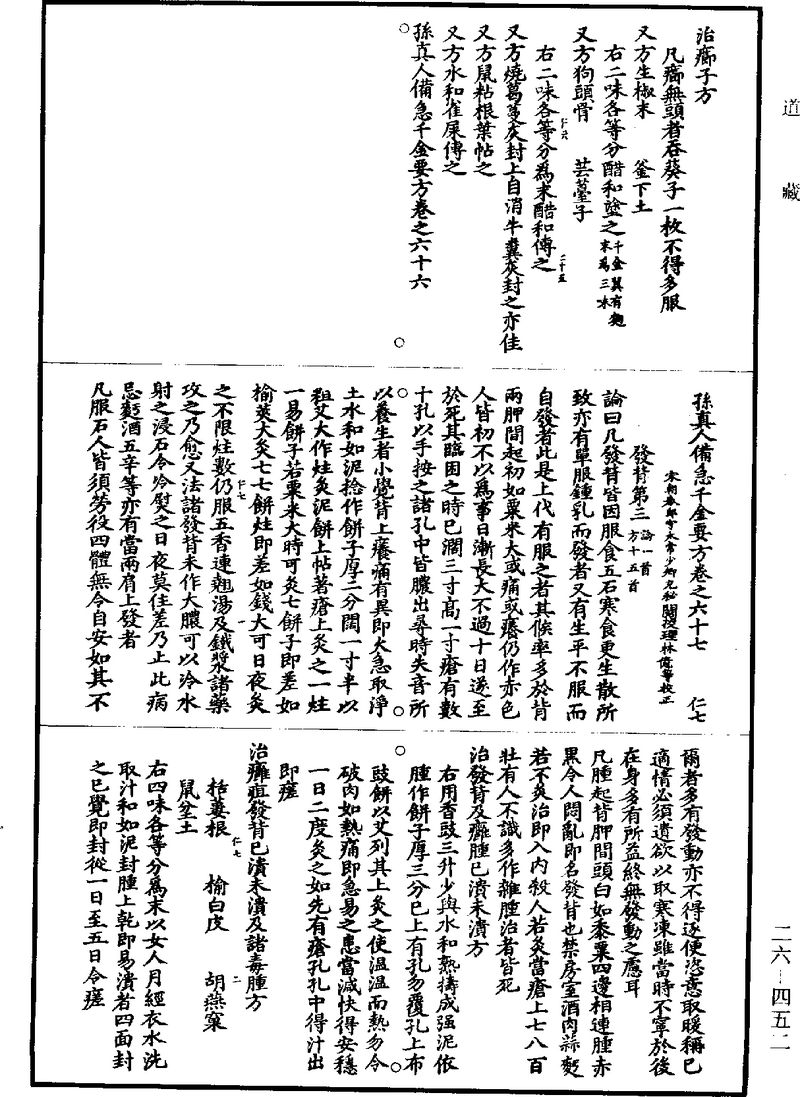 道藏
治癤子方
凡癤無頭者吞葵子一枚不得多服
又方生椒末　釜下土
右二味各等分醋和塗之千金翼有麴末爲三味
又方狗頭骨　芸薹子
右二味各等分爲末醋和傅之
又方燒葛蔓灰封上自消牛糞灰封之亦佳
又方鼠粘根葉帖之
又方水和雀屎傅之
孫真人備急千金要方卷之六十六
孫真人備急千金要方卷之六十七　仁七
發背第三論一首方十五首
論曰凡發背皆因服食五石寒食更生散所
致亦有單服鍾乳而發者又有生平不服而
自發者此是上代有服之者其候率多於背
兩胛間起初如粟米大或痛或癢仍作赤色
人皆初不以爲事日漸長大不過十日遂至
於死其臨困之時已濶三寸高一寸瘡有數
十孔以手按之諸孔中皆膿出尋時失音所
以養生者小覺背上癢痛有異即大急取淨
土水和如泥捻作餅子厚二分闊一寸半以
麤艾大作炷灸泥餅上帖著瘡上灸之一炷
一易餅子若粟米大時可灸七餅子即差如
榆莢大灸七七餅炷即差如錢大可日夜灸
之不限炷數仍服五香連翹湯及鐵漿諸藥
攻之乃愈又法諸發背未作大膿可以冷水
射之浸石令冷熨之日夜莫住差乃止此病
忌麪酒五辛等亦有當兩肩上發者
凡服石人皆須勞役四體無令自安如其不
爾者多有發動亦不得逐便恣意取暖稱已
適情必須遺欲以取寒凍雖當時不寧於後
在身多有所益終無發動之慮耳
凡腫起背胛間頭白如黍粟四邊相連腫赤
黑令人悶亂即名發背也禁房室酒肉蒜麪
若不灸治即入内殺人若灸當瘡上七八百
壯有人不識多作雜腫治者皆死
治發背及癰腫已潰未潰方
右用香豉三升少與水和熟擣成强泥依
腫作餅子厚三分已上有孔勿覆孔上布
豉餅以艾列其上灸之使温温而熱勿令
破肉如熱痛即急易之患當減快得安穩
一日二度灸之如先有瘡孔孔中得汁出
即瘥
治癰疽發背已潰未潰及諸毒腫方
栝蔞根　榆白皮　胡燕窠
鼠坌土
右四味各等分爲末以女人月經衣水洗
取汁和如泥封腫上乾即易潰者四面封
之已覺即封從一日至五日令瘥
二六－四五二